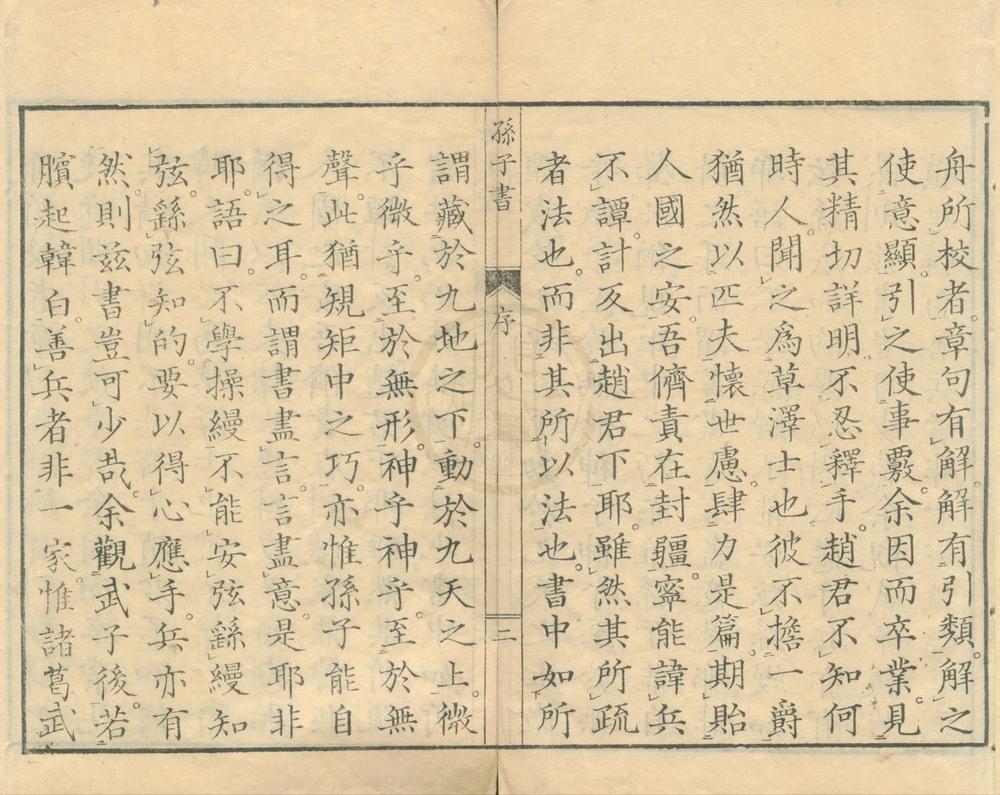 舟所校者。章句有解。解有引類。解之
使意顯。引之使事覈。余因而卒業。見
其精切詳明。不忍釋手。趙君不知何
時人。聞之爲草澤士也。彼不擔一爵
猶然以匹夫懷世慮。肆力是篇。期貽
人國之安。吾儕責在封疆。寧能諱兵
不譚。計反出趙君下耶。雖然其所疏
者法也。而非其所以法也。書中如所
孫子書 序 二
謂藏於九地之下。動於九天之上。微
乎微乎。至於無形。神乎神乎。至於無
聲。此猶規矩中之巧。亦惟孫子能自
得之耳。而謂書盡言。言盡意。是耶非
耶。語曰。不學操縵。不能安弦。繇縵知
弦。繇弦知的。要以得心應手。兵亦有
然。則兹書豈可少哉。余觀武子後。若
臏起韓白。善兵者非一家。惟諸葛武